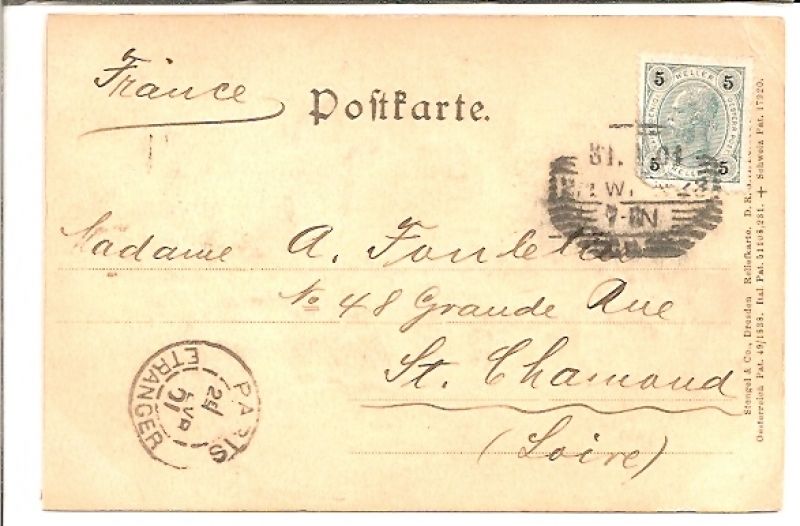 France
Postkarte.
5 HELLER 5
5 5
Madame A.
No 48 Grande Rue
St. Chamond
(Loire)
PARIS
ETRANGER
AVR
01
Stengel & Co., Dresden Reliefkarte.
Oesterreich Pat. 49/1838. Ital Pat. 51108,281. + Schweiz Pat. 17920.